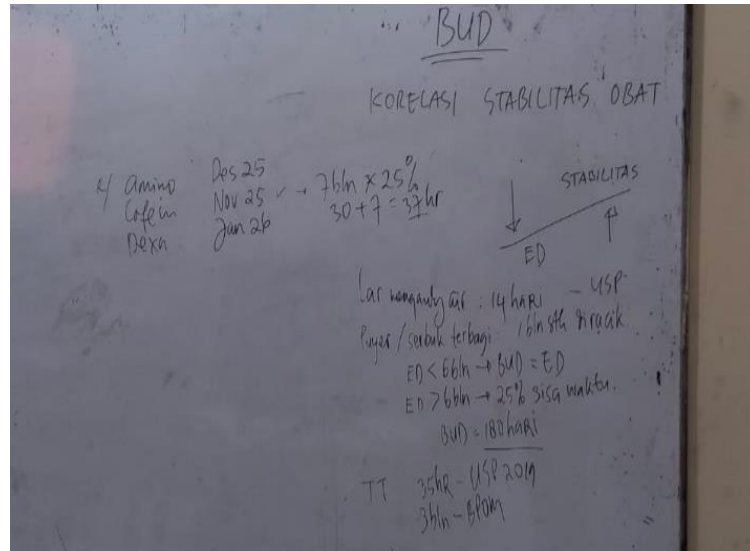 BUD
KORELASI STABILITAS OBAT
R/ Amino Des 25
Cofein Nov 25 → 7bln × 25%
Dexa Jan 26 30 + 7 = 37 hr
STABILITAS
ED
Lar mengandung air : 14 HARI - USP
Puyer / serbuk terbagi 6bln stlh diracik
ED < 6bln → BUD = ED
ED > 6bln → 25% sisa waktu.
BUD = 180 hari
TT 35hr - USP 2019
3bln - BPOM